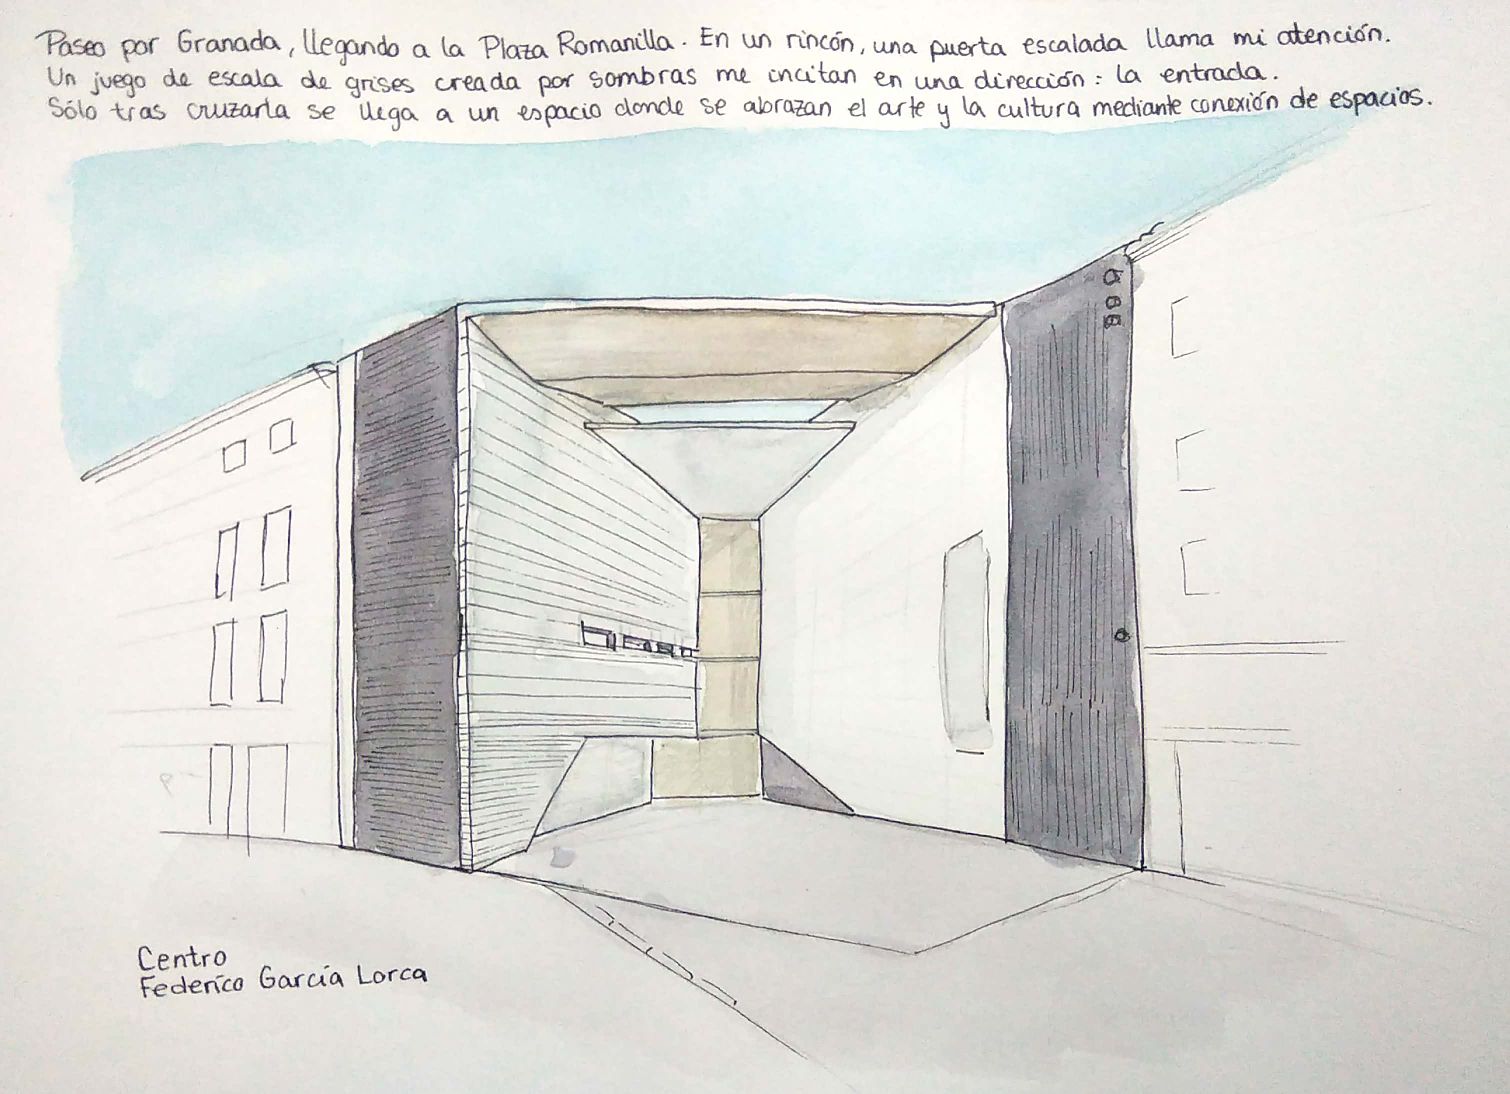 Paseo por Granada, llegando a la Plaza Romanilla. En un rincón, una puerta escalada llama mi atención.
Un juego de escala de grises creada por sombras me incitan en una dirección: la entrada.
Sólo tras cruzarla se llega a un espacio donde se abrazan el arte y la cultura mediante conexión de espacios.
Centro
Federico García Lorca